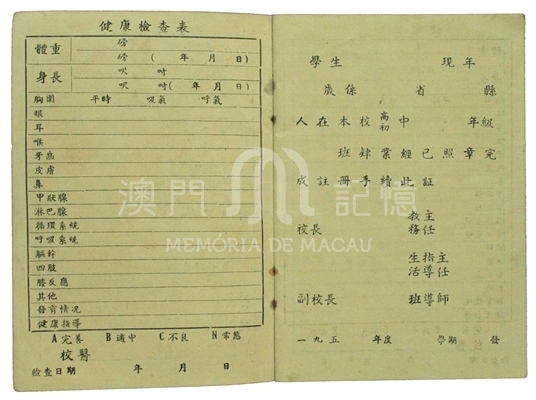 健康檢查表
體重 磅
磅 ( 年 月 日)
身長 呎 吋
呎 吋( 年 月 日)
胸圍 平時 吸氣 呼氣
眼
耳
喉
牙齒
皮膚
鼻
甲狀腺
淋巴腺
循環系統
呼吸系統
軀幹
四肢
膝反應
其他
發育情況
健康指導
A完善 B適中 C不良 N常態
校醫
檢查日期 年 月 日
學生 現年
歲係 省 縣
人在本校高初中 年級
班肄業經已照章完
成註冊手續此証
校長 教務主任
生活指導主任
副校長 班導師
一九五 年度 學期 發
澳門 記憶
MEMÓRIA DE MACAU